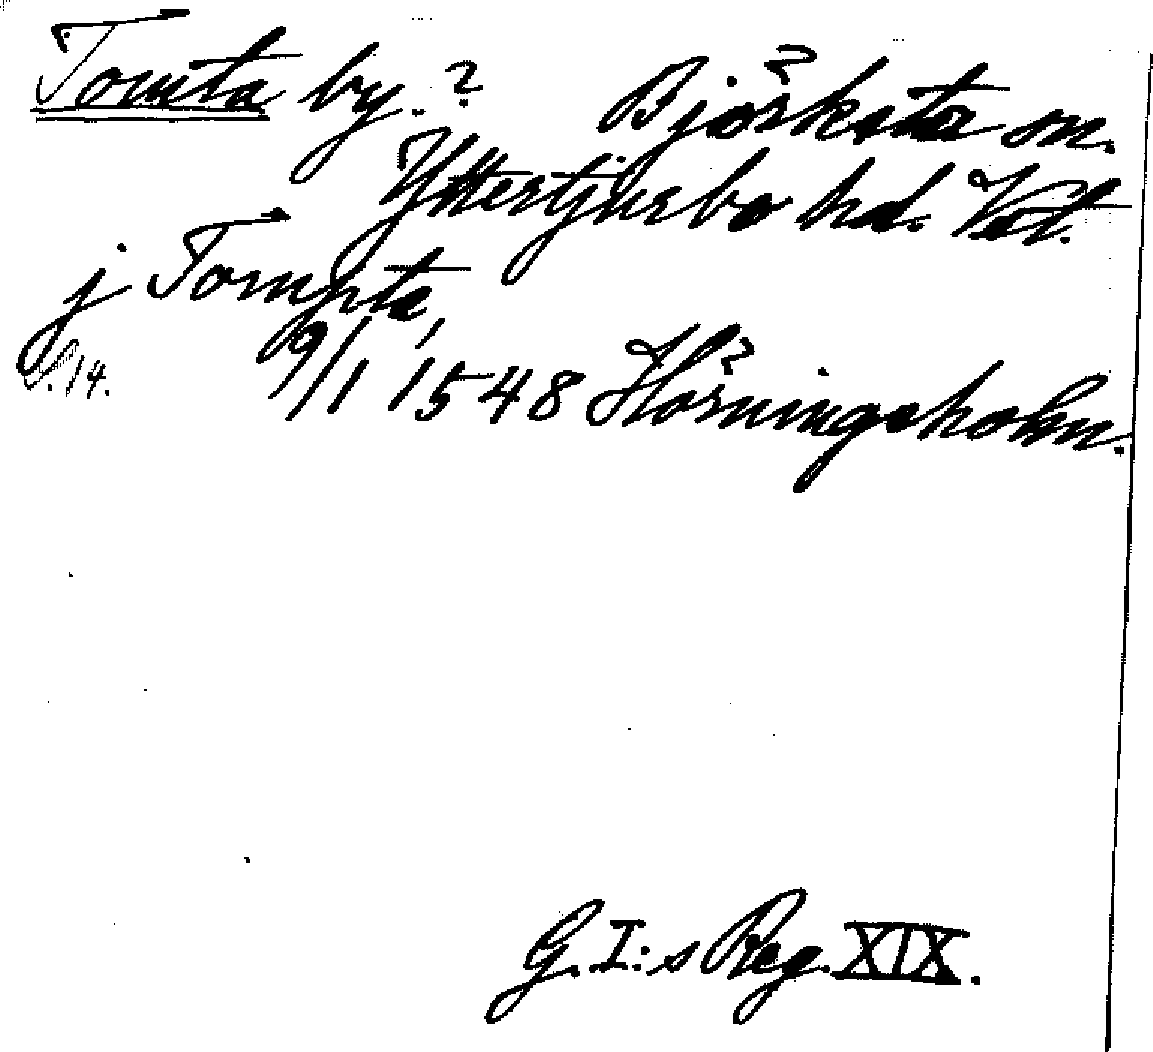 Tomta by.? Björksta sn.
Yttertjurbo hd. Vstl.
j Tompta,
S. 14. 9/1 1548 Hörningsholm.
G. I:s Reg. XIX.